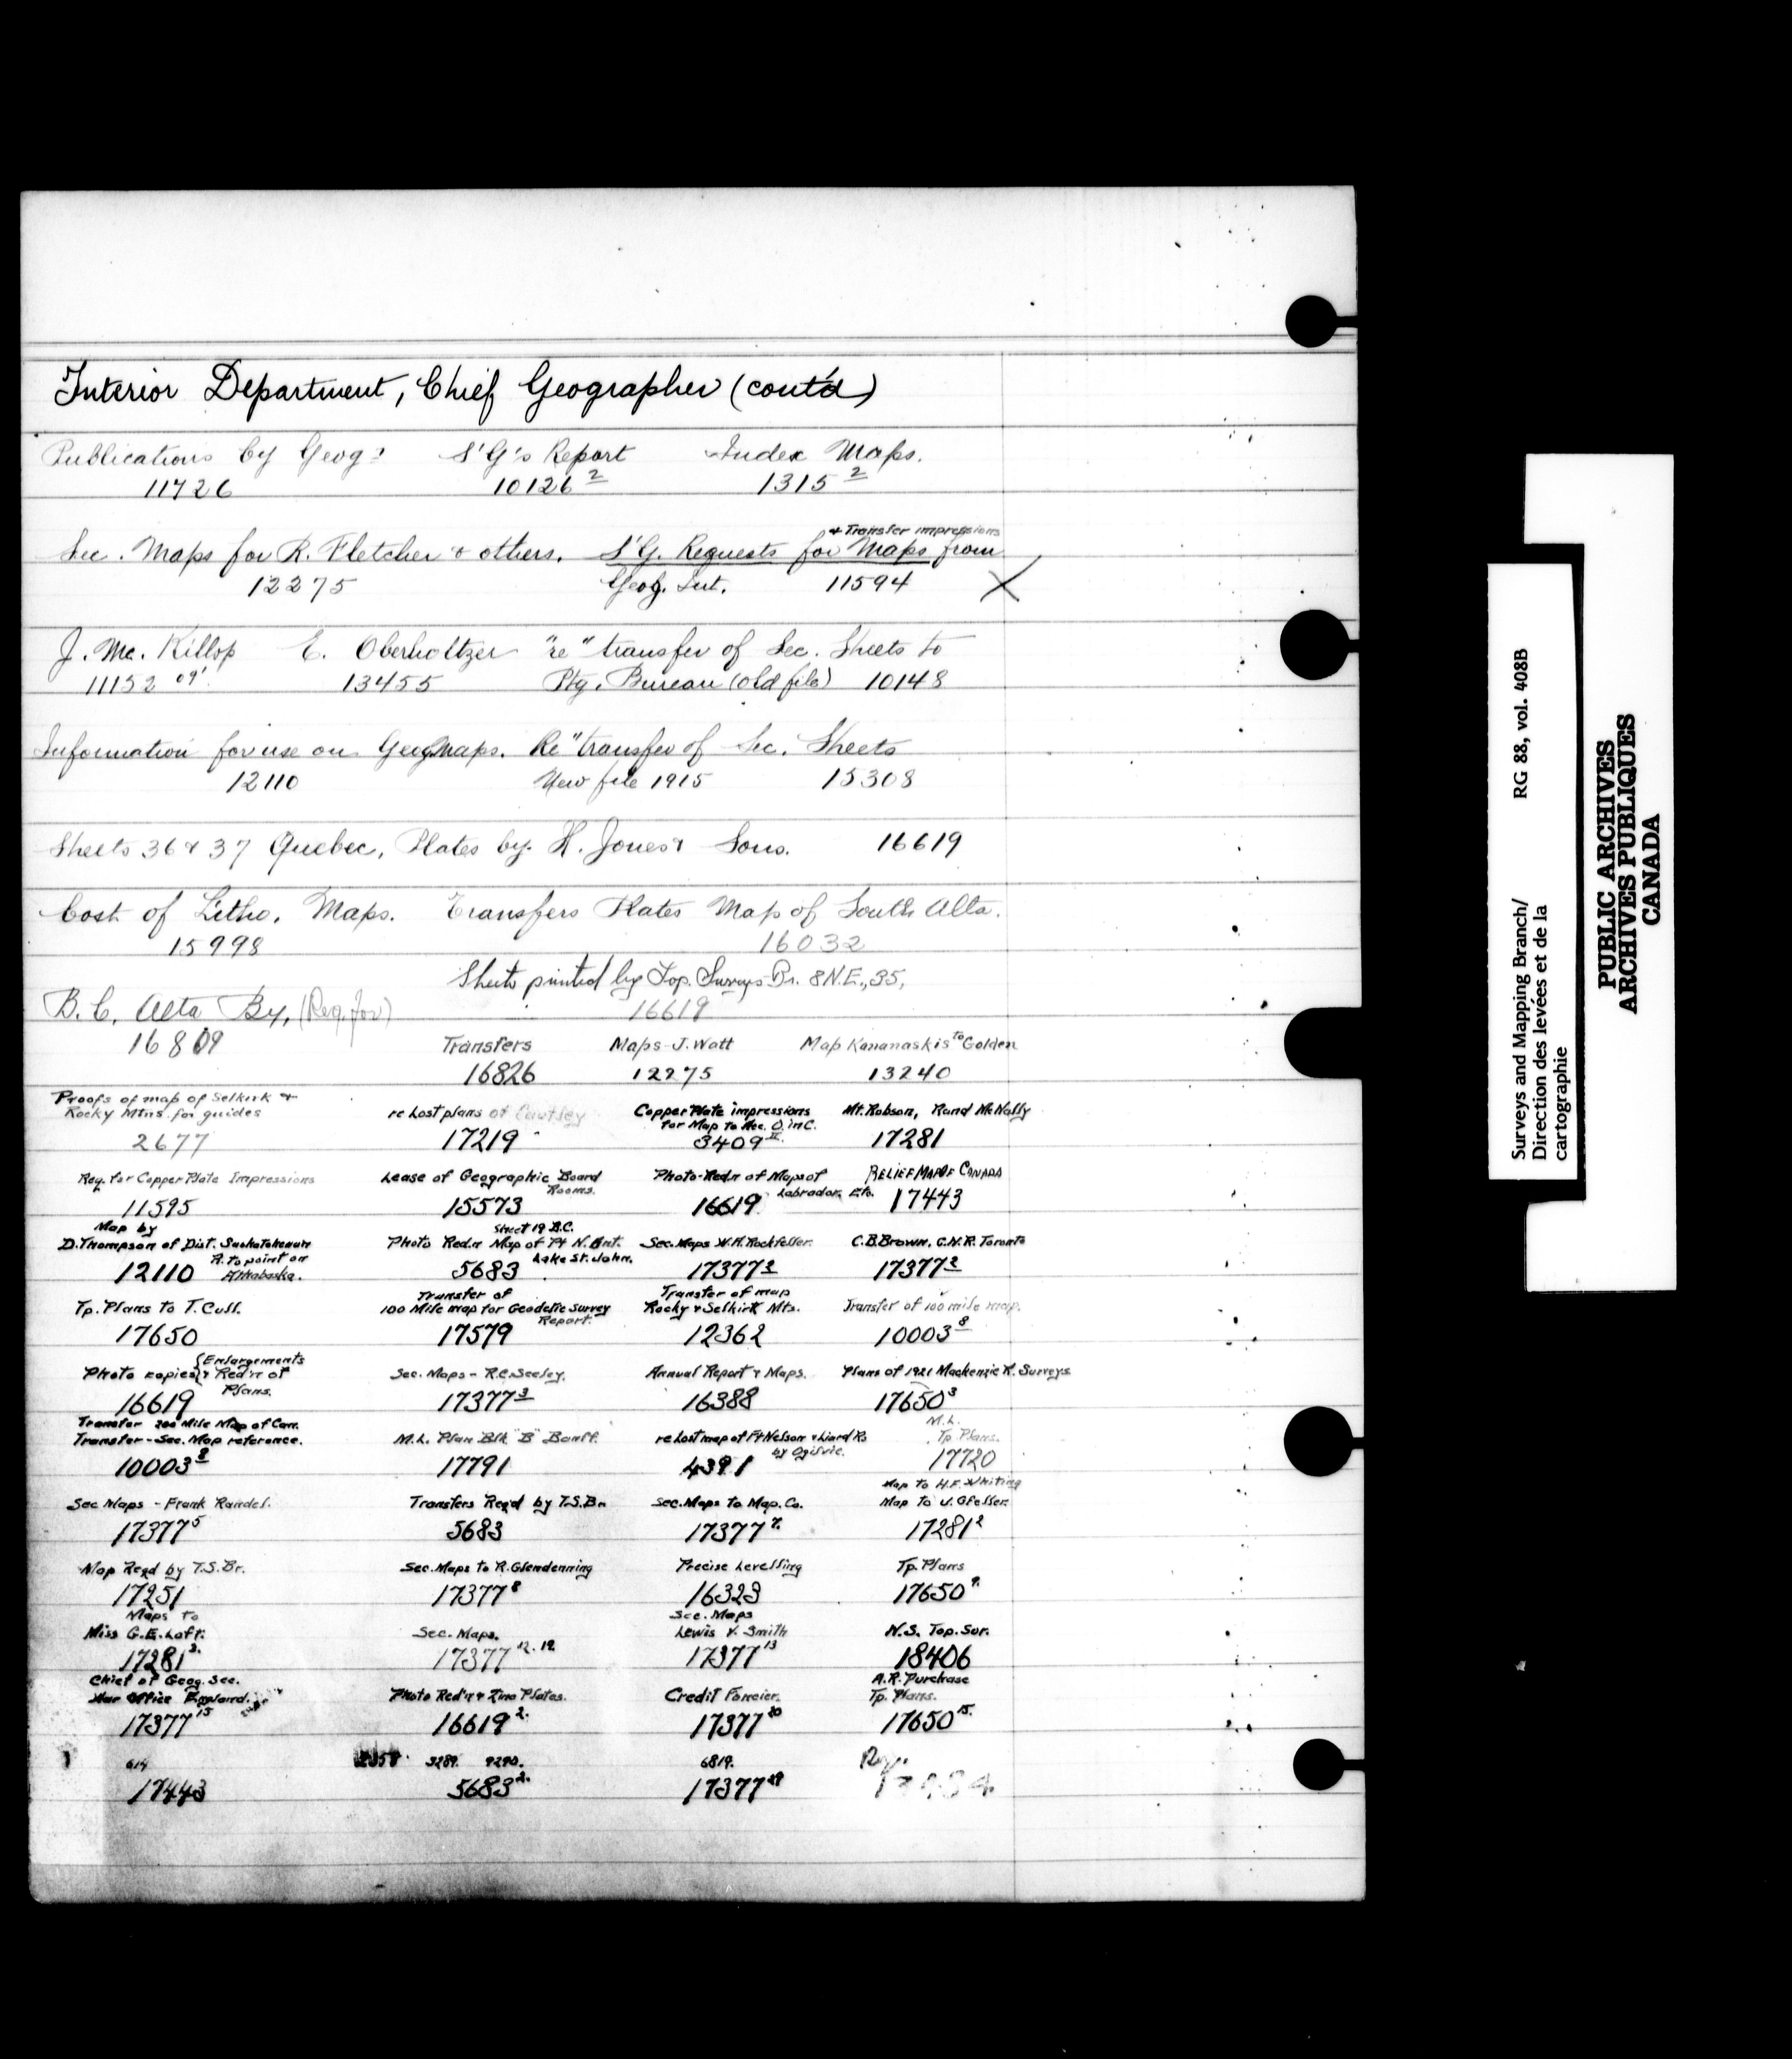 Interior Department, Chief Geographer (cont'd)
Publications by Geogr S'G's Report Index Maps.
11726 10126 2 1315 2
+ Transfer impressions
Sec. Maps for R. Fletcher & others. S'G. Requests for Maps from
12275 Geog. 11594 X
J. Mc. Killop E. Oberholtzer "re" transfer of Sec. Sheets to
11152 09' 13455 Ptg. Bureau (old file) 10148
Information for use on Geog maps. Re" transfer of Sec. Sheets
12110 New file 1915 15308
Sheets 36 & 37 Quebec, Plates by H. Jones & Sons. 16619
Cost of Litho. Maps. Transfers Plates Map of South Alta.
15998 16032
Sheets printed by Top. Surveys Br. 8 N.E., 35,
B.C. Alta By, (Req. for) 16619
16809 Transfers Maps-J. Watt Map Kananaskis to Golden
16826 12275 13240
Proofs of map of Selkirk +
Rocky Mtns. for guides re Lost plans of Cautley Copper Plate impressions Mt. Robson, Rand McNally
for Map to Acc. O. in C.
2677 17219 3409 II 17281
Req. for Copper Plate Impressions Lease of Geographic Board Photo-Redn of Maps of RELIEF MAP OF CANADA
Rooms. Labrador, Etc.
11595 15573 16619 17443
Map by Sheet 19 B.C.
D. Thompson of Dist. Saskatchewan Photo Redn Map of Pt N. Ont. Sec. Maps W.H. Rockfeller. C.B. Brown, C.N.R. Toronto
R. to point on Athabaska. Lake St. John.
12110 5683 17377 2 17377 2
Transfer of Transfer of map
Tp. Plans to T. Cull. 100 Mile map for Geodetic Survey Rocky & Selkirk Mts. Transfer of 100 mile map.
Report.
17650 17579 12362 10003 8
Photo copies { Enlargements & Red'n of Plans. Sec. Maps - R.C. Seeley. Annual Report & Maps. Plans of 1921 Mackenzie R. Surveys
16619 17377 3 16388 17650 3
Transfer 200 Mile Map of Can. M.L.
Transfer - Sec. Map reference. M.L. Plan Blk "B" Banff. re Lost map of Ft Nelson & Liard Rs Tp. Plans.
by Ogilvie.
10003 8 17791 4391 17720
Map to H.F. Whiting
Sec Maps - Frank Randel. Transfers Req'd by T.S. Br. Sec. Maps to Map. Co. Map to J. Gfeller.
17377 5 5683 17377 7. 17281 2
Map Reqd by T.S. Br. Sec. Maps to R. Glendenning Precise Levelling Tp. Plans
17251 17377 8 16323 17650 9.
Maps to Sec. Maps
Miss G.E. Loft. Sec. Maps. Lewis V. Smith N.S. Top. Sur.
17281 3. 17377 12. 19. 17377 13 18406
Chief of Geog. Sec. A.R. Purchase
War Office England. Photo Red'n & Zinc Plates. Credit Foncier. Tp. Plans.
17377 15 16619 2. 17377 20 17650 15.
614 3289. 9290. 6819.
17443 5683 2. 17377 29
Surveys and Mapping Branch/ RG 88, vol. 408B
Direction des levées et de la
cartographie
PUBLIC ARCHIVES
ARCHIVES PUBLIQUES
CANADA